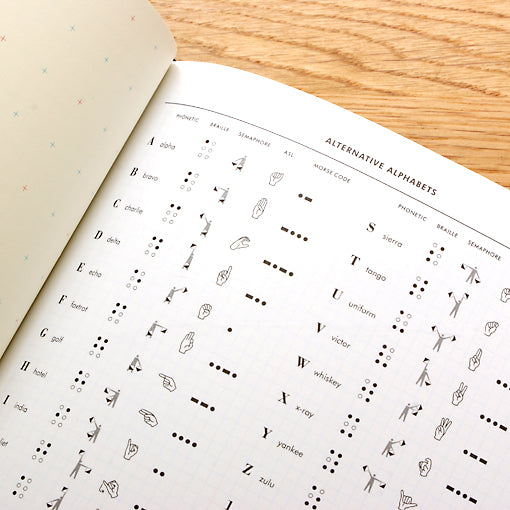 ALTERNATIVE ALPHABETS
PHONETIC BRAILLE SEMAPHORE ASL MORSE CODE
A alpha
B bravo
C charlie
D delta
E echo
F foxtrot
G golf
H hotel
I india
PHONETIC BRAILLE SEMAPHORE
S sierra
T tango
U uniform
V victor
W whiskey
X x-ray
Y yankee
Z zulu